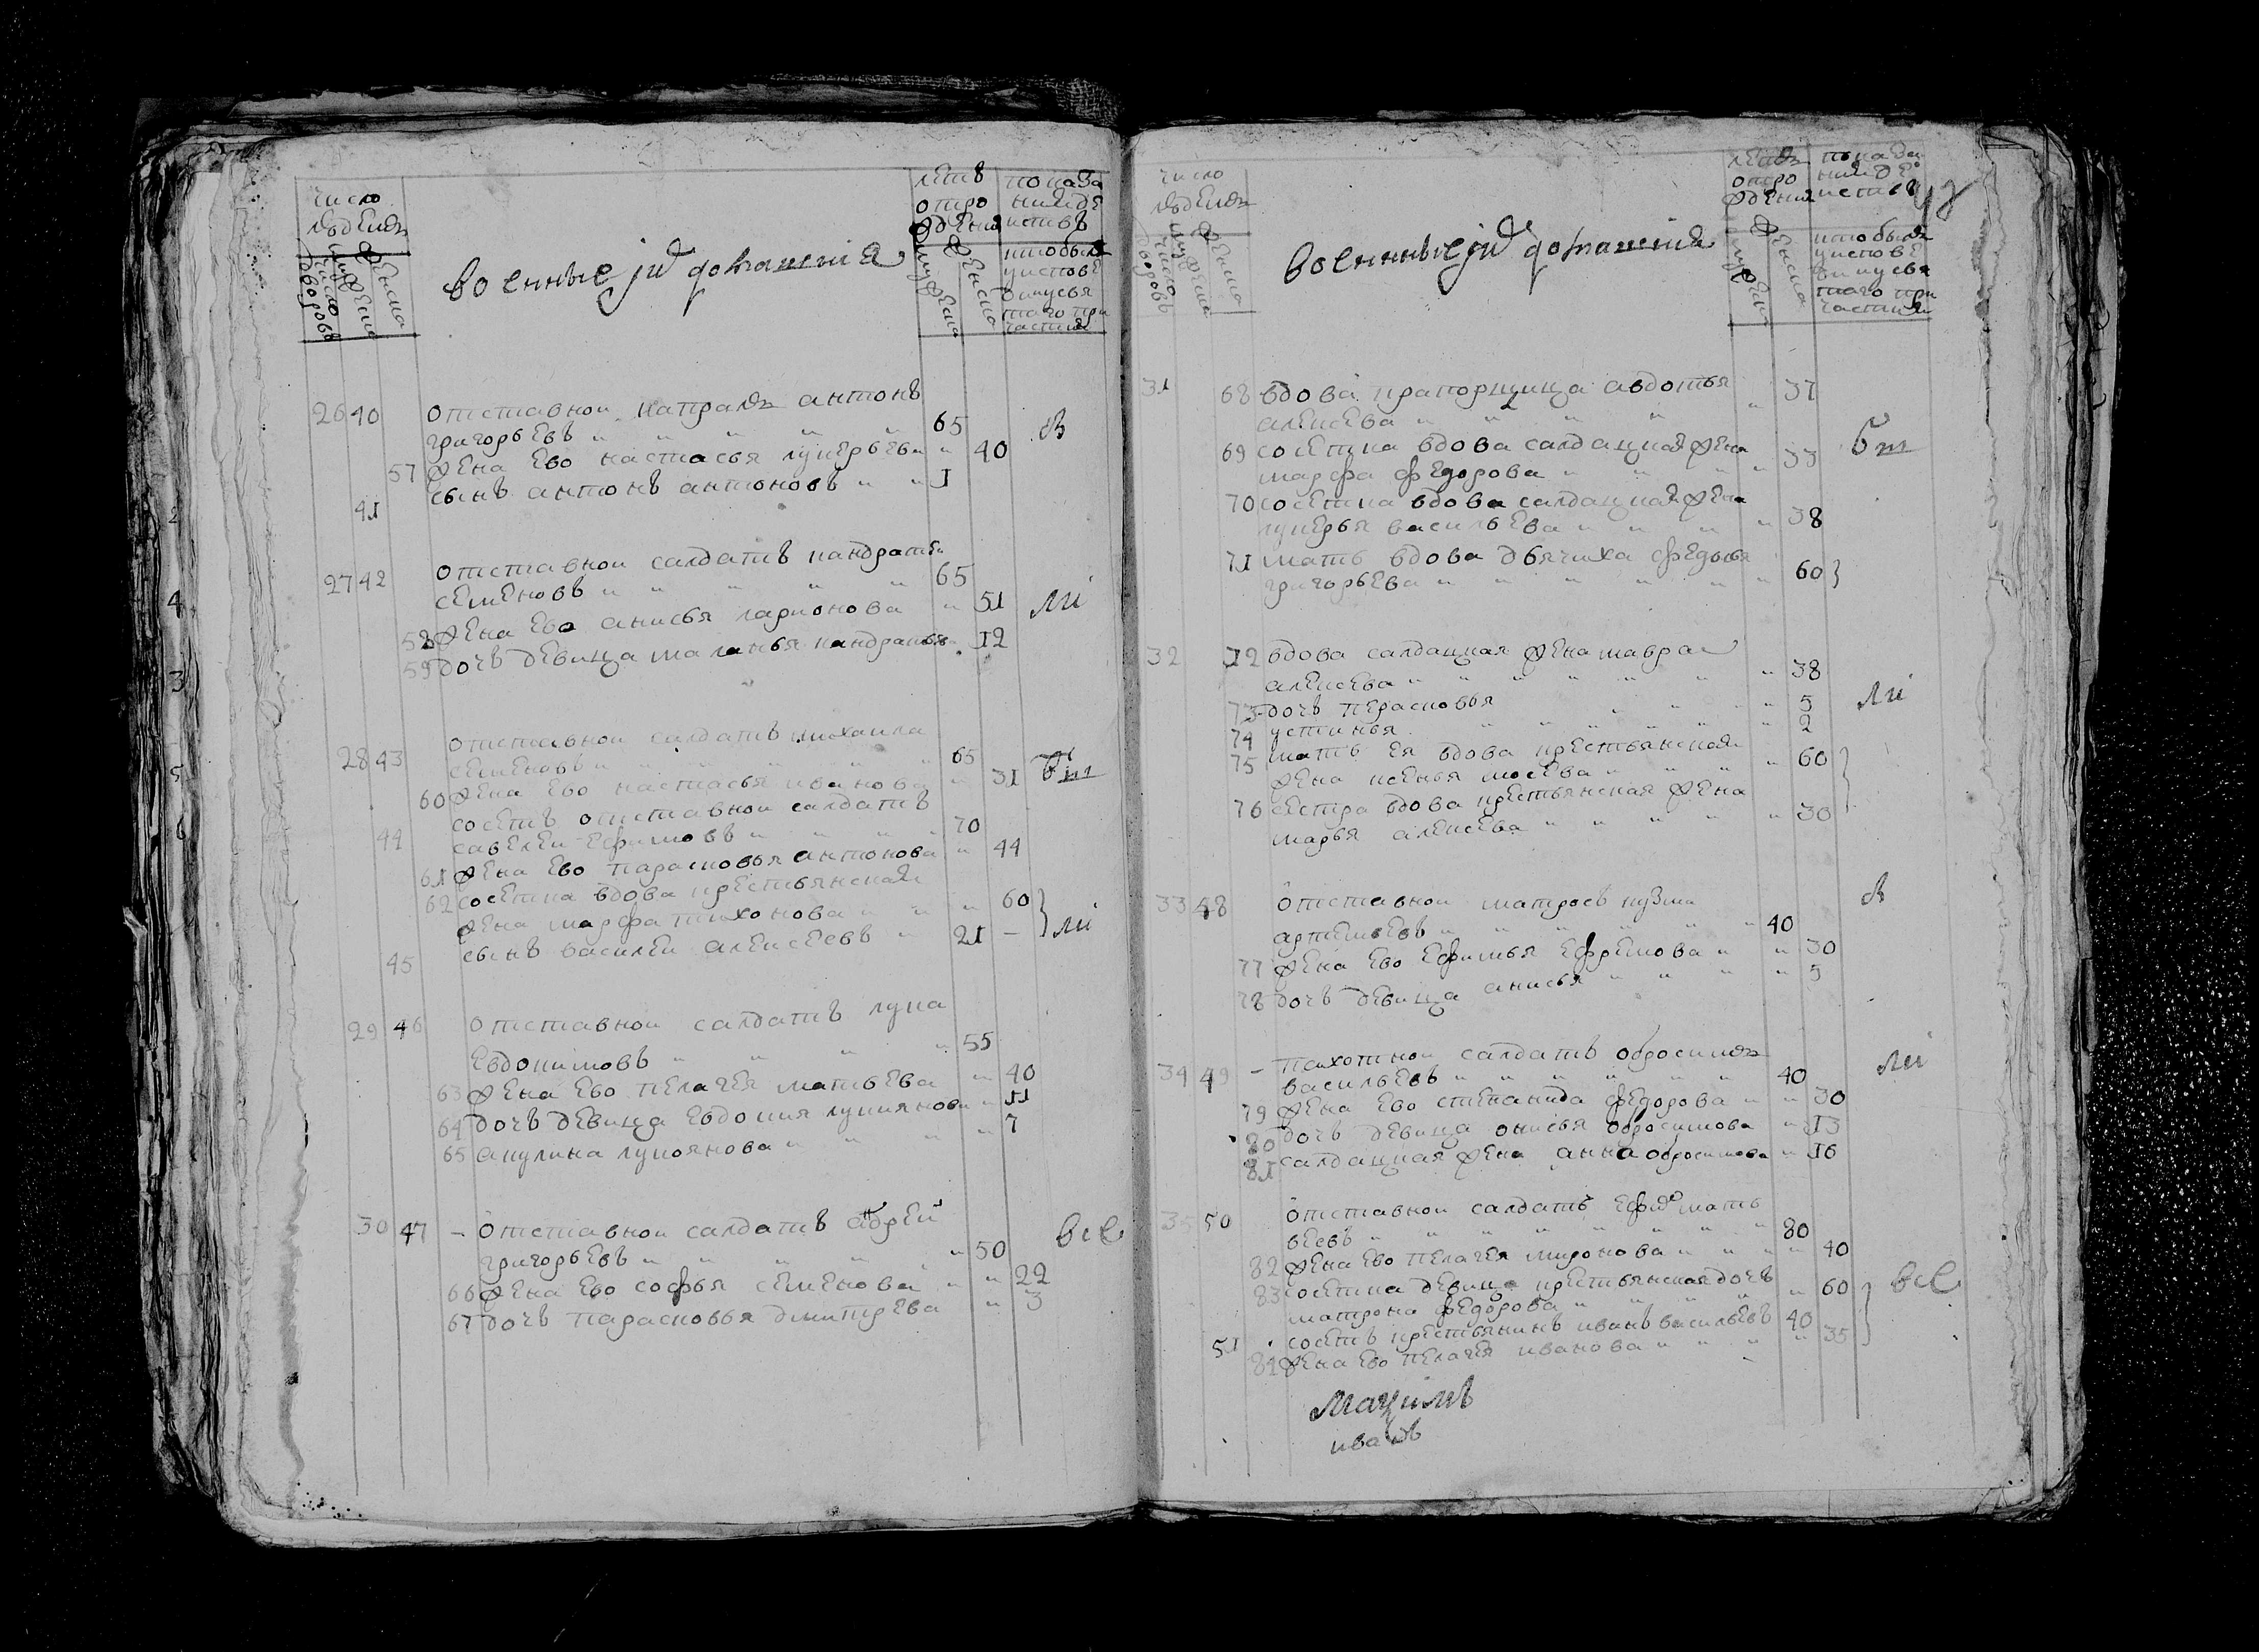 число
людеи
число дворовъ
мужеска
женска
военные и домашния
летъ
от ро
ждения
мужеска
женска
показа
ние де
иствъ
кто былъ
у испове
ди и у свя
таго при
частия
26 40 отставнои капралъ антонъ
григорьевъ " " " " " 65
57 жена ево настасья лукерьева " 40
41 сынъ антонъ антоновъ " " 1
27 42 отставнои салдатъ кандратеи
семеновъ " " " " " 65
58 жена ево анисья ларионова " 51
59 дочь девица маланья кандратьева " 12
28 43 отставнои салдатъ михаила
семеновъ " " " " " 65
60 жена ево настасья иванова " 31
сосетъ отставнои салдатъ
44 савелеи ефимовъ " " " " 70
61 жена ево парасковья антонова " 44
62 сосетка вдова крестьянская
жена марфа тихонова " " " 60
45 сынъ василеи алексеевъ " 21 -
29 46 отставнои салдатъ лука
евдокимовъ " " " " 55
63 жена ево пелагея матвеева " 40
64 дочь девица евдокия лукиянова " 11
65 акулина лукоянова " " " " 7
30 47 - отставнои салдатъ адреи
григорьевъ " " " " " 50
66 жена ево софья семенова " " 22
67 дочь парасковья дмитрева " 3
все
число
людеи
число дворовъ
мужеска
женска
военные и домашния
летъ
от ро
ждения
мужеска
женска
показа
ние де
иствъ
кто былъ
у испове
ди и у свя
таго при
частия
31 68 вдова прапорщица авдотья
алексева " " " " " 37
69 сосетка вдова салдацкая жена
марфа федорова " " " " 33
70 сосетка вдова салдацкая жена
лукерья васильева " " " " 38
71 мать вдова дьячиха федосья
григорьева " " " " " " 60
32 72 вдова салдацкая жена мавра
алексева " " " " " " 38
73 дочь парасковья " " " 5
74 устинья " " " " " " 2
75 мать ея вдова крестьянская
жена ксенья мосева " " " " 60
76 сестра вдова крестьянская жена
марья алексева " " " " " 30
33 48 отставнои матросъ кузма
артемьевъ " " " " " " 40
77 жена ево ефимья ефремова " " 30
78 дочь девица анисья " " " " 5
34 49 - пахотнои салдатъ обросимъ
васильевъ " " " " " " 40
79 жена ево степанида федорова " " 30
80 дочь девица онисья обросимова " 13
81 салдацкая жена анна обросимова " 16
35 50 отставнои салдатъ ефимъ мать
веевъ " " " " " " " 80
82 жена ево пелагея миронова " " " " 40
83 сосетка девица крестьянская дочь
матрона федорова " " " " " 60
51 сосетъ крестьянинъ иванъ васильевъ 40
84 жена ево пелагея иванова " " " " 35
все
максимъ
ивановъ